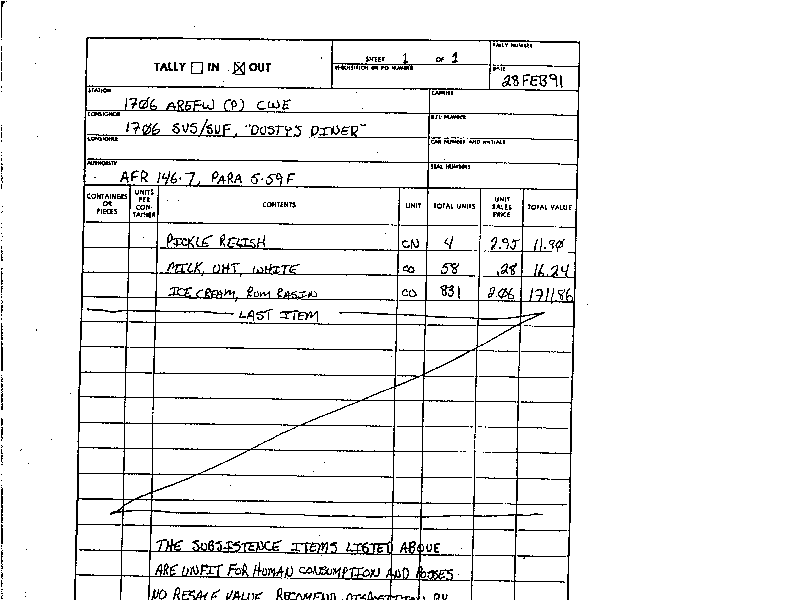 TALLY IN OUT
SHEET 1 OF 1
TALLY NUMBER
REQUISITION OR PO NUMBER
DATE
28 FEB 91
STATION
1706 AREFW (P) CWE
CARRIER
CONSIGNOR
1706 SVS/SUF, "DUSTY'S DINER"
B/L NUMBER
CONSIGNEE
CAR NUMBER AND INITIALS
AUTHORITY
AFR 146-7, PARA 5-59F
SEAL NUMBERS
CONTAINERS OR PIECES UNITS PER CON- TAINER CONTENTS UNIT TOTAL UNITS UNIT SALES PRICE TOTAL VALUE
PICKLE RELISH CN 4 2.95 11.80
MILK, UHT, WHITE CO 58 .28 16.24
ICE CREAM, RUM RASIN CO 831 2.06 1711.86
LAST ITEM
THE SUBSISTENCE ITEMS LISTED ABOVE
ARE UNFIT FOR HUMAN CONSUMPTION AND POSSES
NO RESALE VALUE. RECOMEND DISPOSITION BY